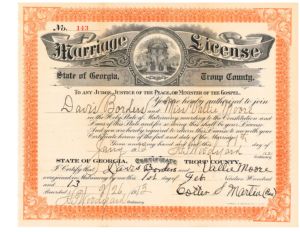 No. 143
Marriage License
State of Georgia, Troup County.
To any Judge, Justice of the Peace, or Minister of the Gospel.
You are hereby authorized to join
Davis Borders & Miss Vallie Moore
in the Holy State of Matrimony according to the Constitution and
Laws of this State and for so doing this shall be your License
And you are hereby required to return this License to me with your
Certificate hereon of the fact and date of the Marriage.
Given under my hand and seal this
Certificate
STATE OF GEORGIA, TROUP COUNTY.
I Certify that Davis Borders and Vallie Moore
were joined in Matrimony by me this 1st day of Feb
13
Recorded 9/26/13